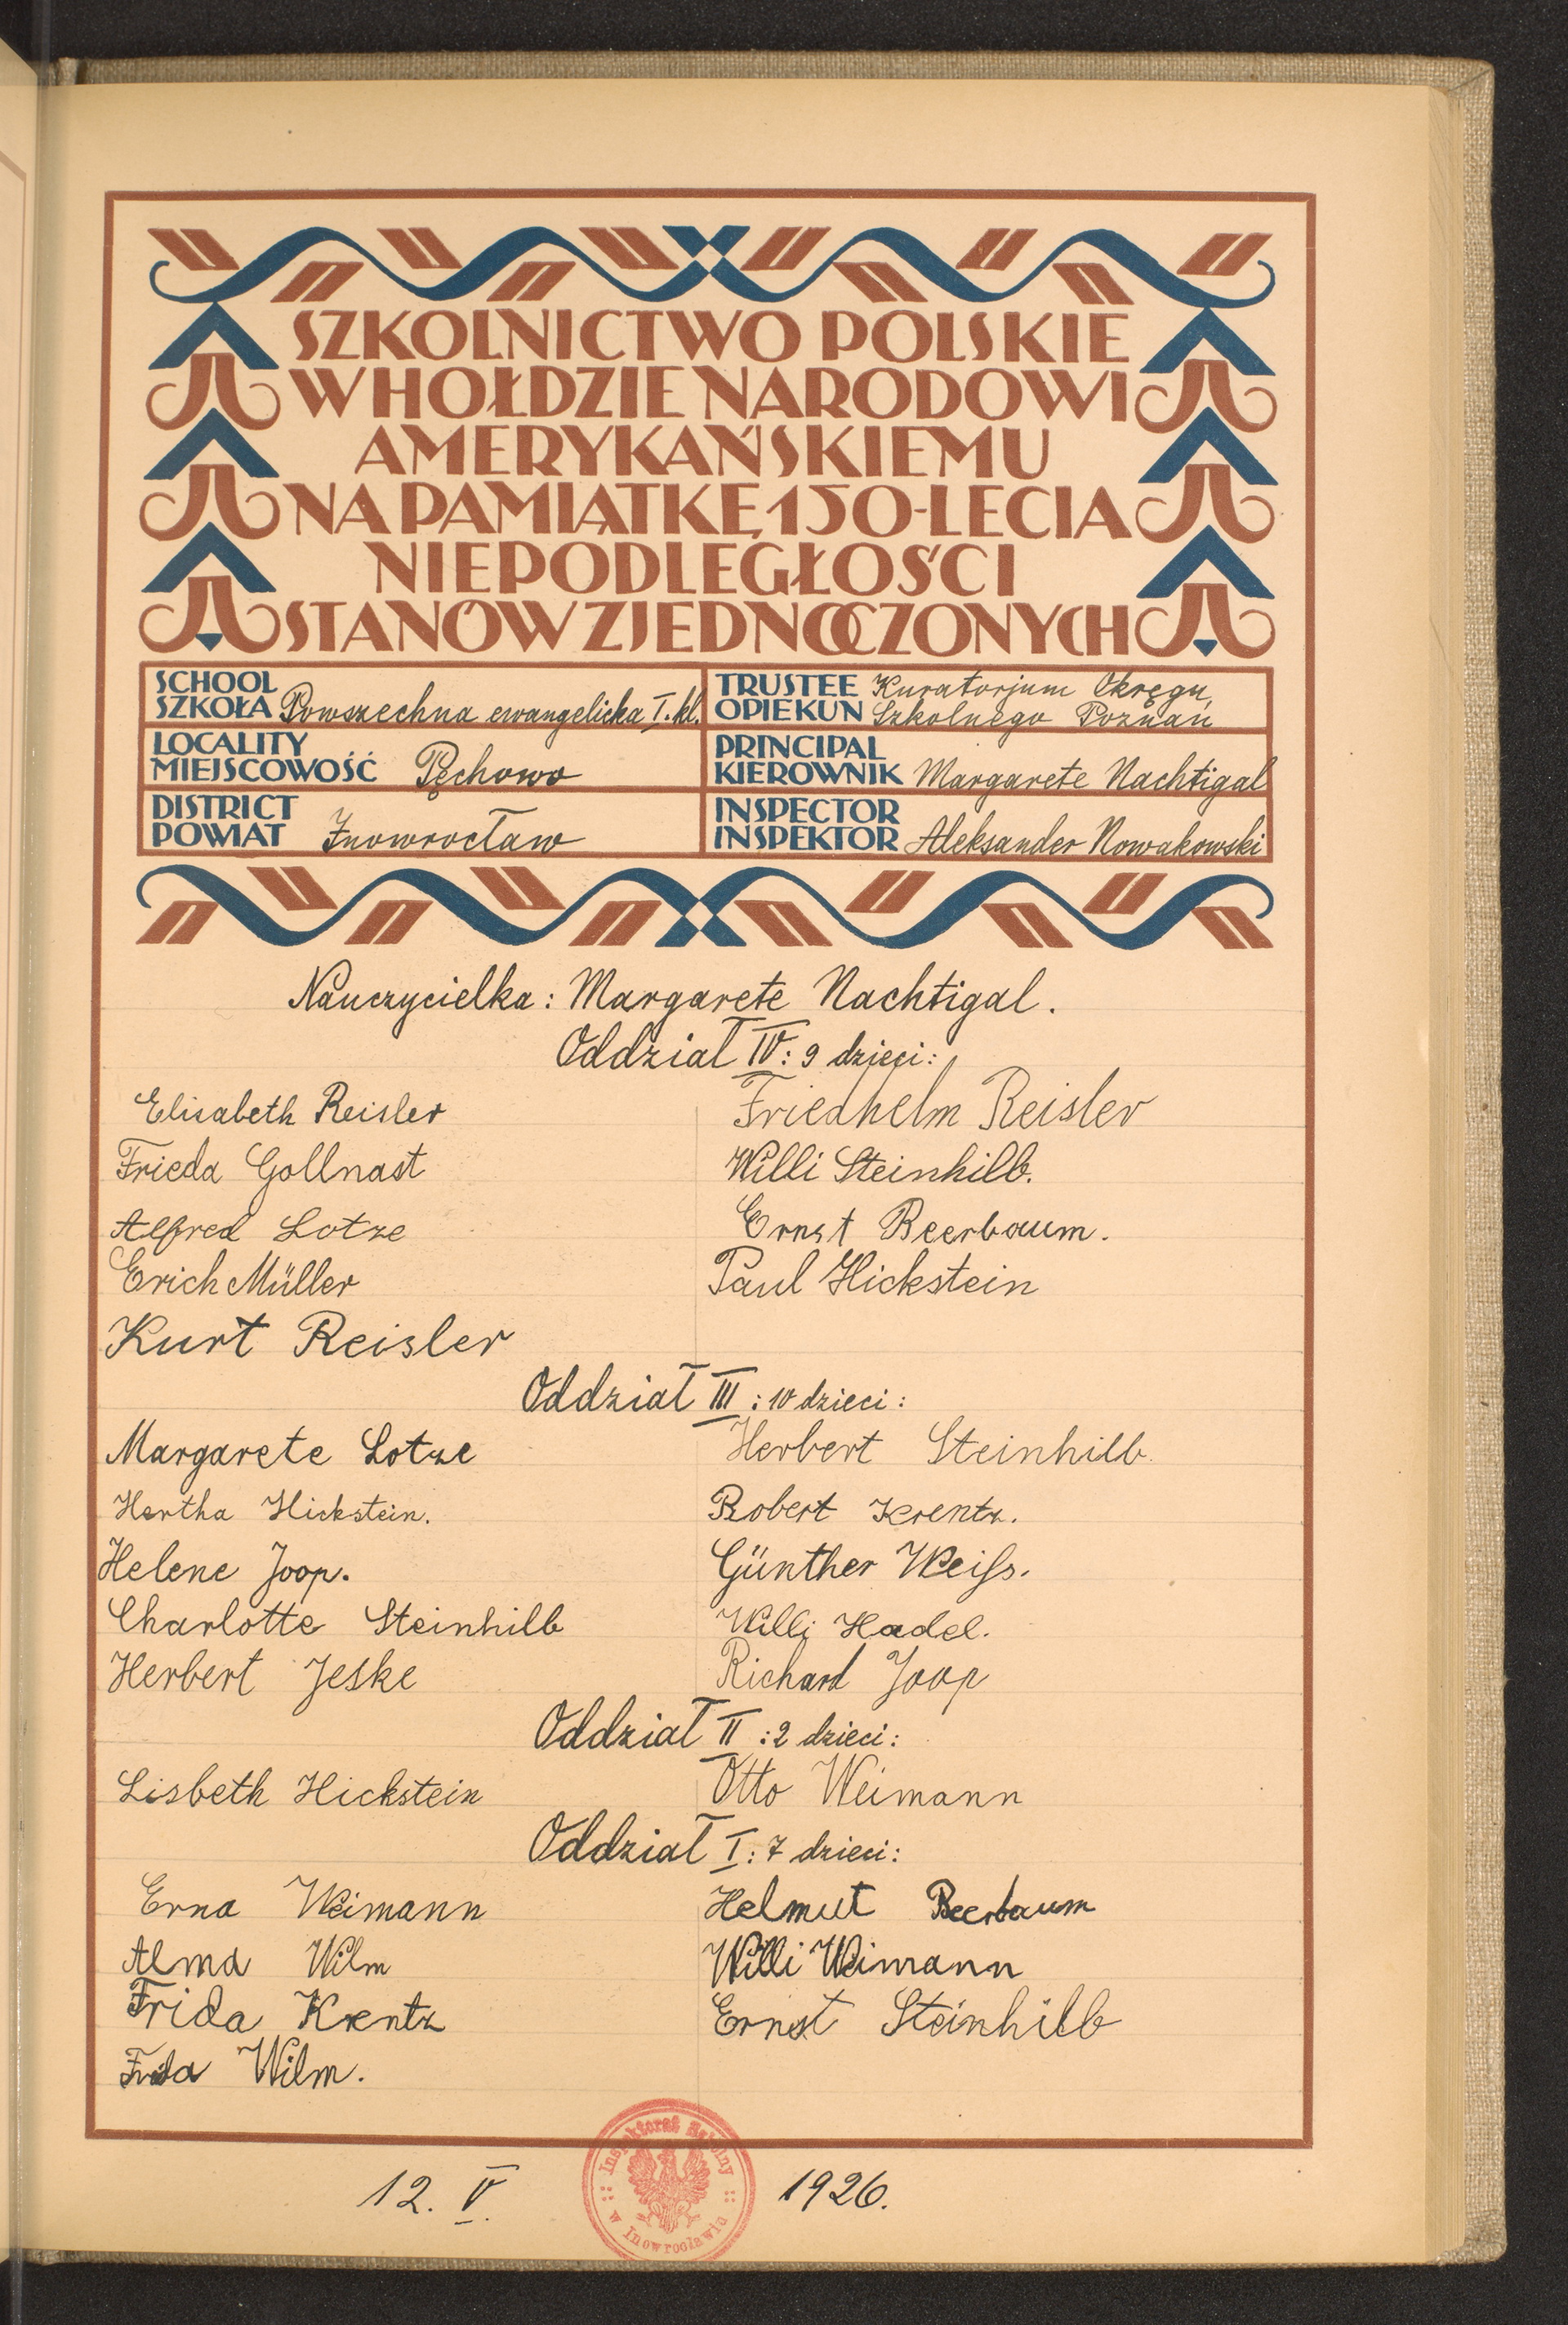 SZKOLNICTWO POLSKIE
W HOŁDZIE NARODOWI
AMERYKAŃSKIEMU
NA PAMIĄTKĘ 150-LECIA
NIEPODLEGŁOŚCI
STANÓW ZJEDNOCZONYCH
SCHOOL
SZKOŁA Powszechna ewangelicka I. kl.
TRUSTEE Kuratorjum Okręgu
OPIEKUN Szkolnego Poznań
LOCALITY
MIEJSCOWOŚĆ Pęchowo
PRINCIPAL
KIEROWNIK Margarete Nachtigal
DISTRICT
POWIAT Inowrocław
INSPECTOR
INSPEKTOR Aleksander Nowakowski
Nauczycielka: Margarete Nachtigal.
Oddział IV: 9 dzieci:
Elisabeth Reisler
Friedhelm Reisler
Frieda Gollnast
Willi Steinhilb.
Alfred Lotze
Ernst Beerbaum.
Erich Müller
Paul Hickstein
Kurt Reisler
Oddział III: 10 dzieci:
Margarete Lotze
Herbert Steinhilb.
Hertha Hickstein.
Robert Krentz.
Helene Joop.
Günther Weiſs.
Charlotte Steinhilb
Willi Hadel.
Herbert Jeske
Richard Joop
Oddział II: 2 dzieci:
Lisbeth Hickstein
Otto Weimann
Oddział I: 7 dzieci:
Erna Weimann
Helmut Beerbaum
Alma Wilm
Willi Weimann
Frida Krentz
Ernst Steinhilb
Frida Wilm.
12. V. 1926.
Inspektorat Szkolny
w Inowrocławiu